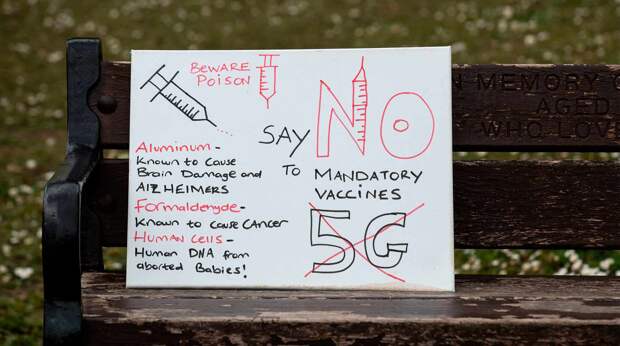 BEWARE
POISON
SAY NO
TO MANDATORY
VACCINES
5G
Aluminum -
Known to Cause
Brain Damage and
AlZHEIMERS
Formaldehyde -
Known to cause CAncer
Human Cells -
Human DNA from
aborted Babies!
IN MEMORY O
AGED
WHO LOVE